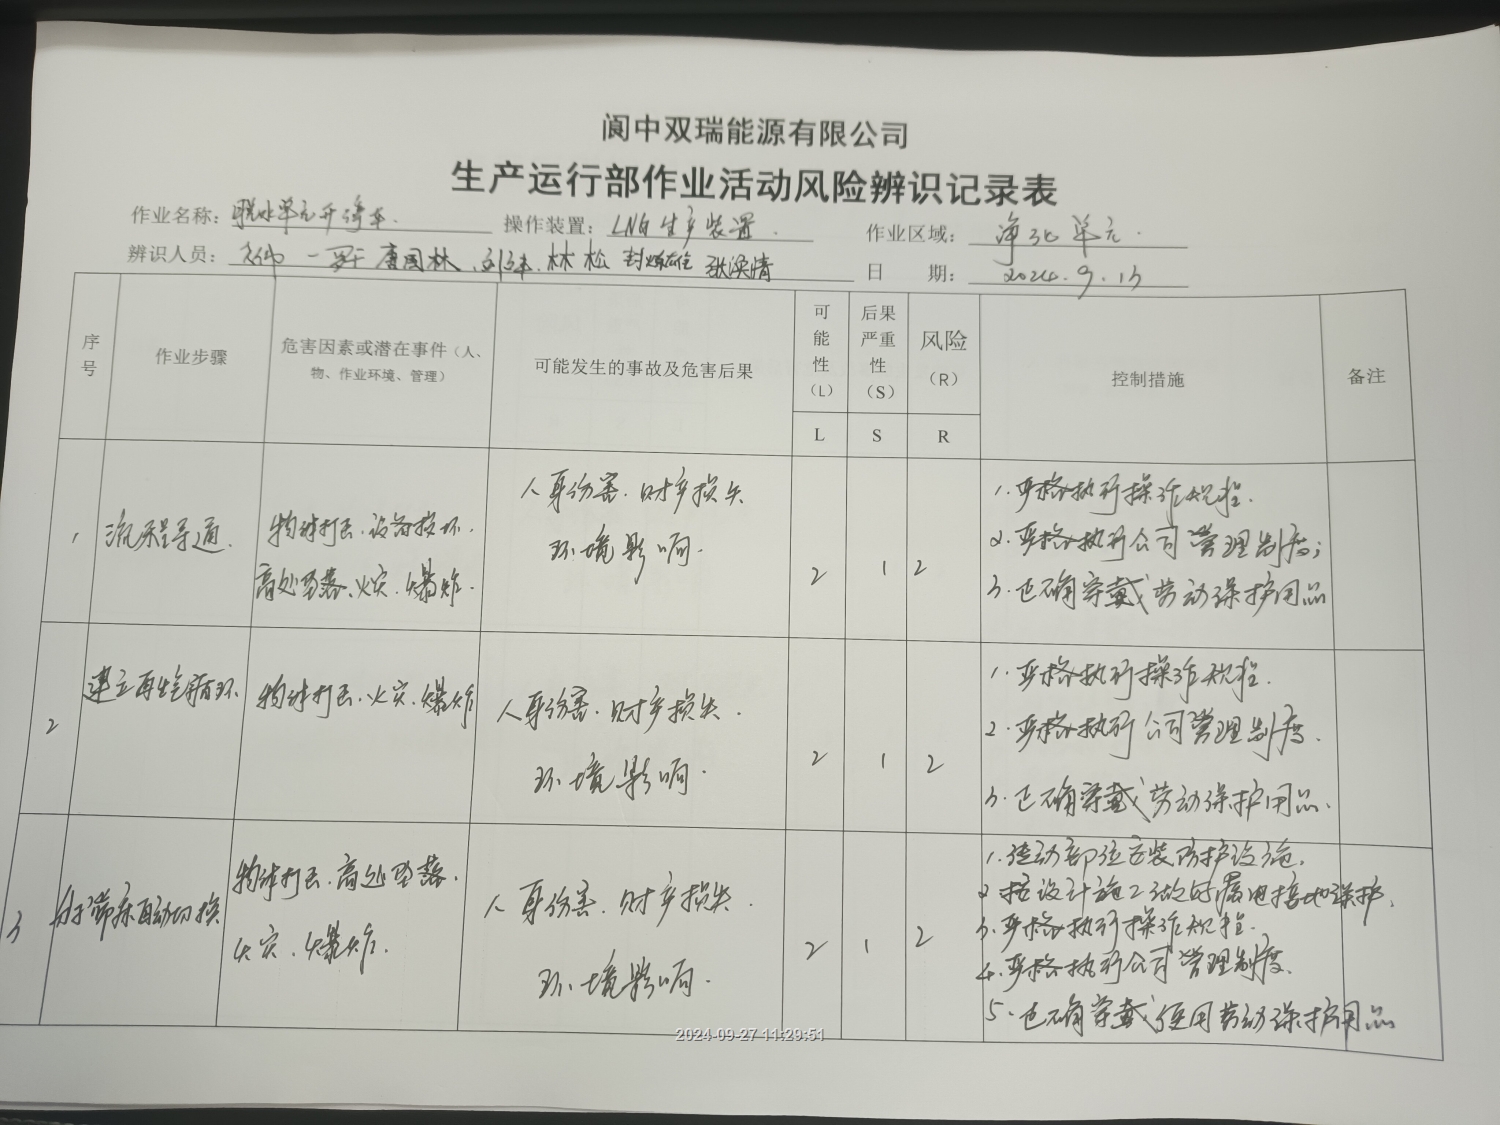 阆中双瑞能源有限公司
生产运行部作业活动风险辨识记录表
作业名称：脱水单元开停车. 操作装置：LNG生产装置. 作业区域：净化单元.
辨识人员：唐国林、林松 日 期：2024.9.13
序号 作业步骤 危害因素或潜在事件（人、物、作业环境、管理） 可能发生的事故及危害后果 可能性（L） 后果严重性（S） 风险（R） 控制措施 备注
L S R
1 流程导通. 物体打击.设备损坏.
高处坠落、火灾.爆炸.
人身伤害.财产损失
环境影响.
2 1 2
1.严格执行操作规程.
2.严格执行公司管理制度;
3.正确穿戴劳动保护用品
2 建立再生气循环 物体打击.火灾.爆炸
人身伤害.财产损失.
环境影响.
2 1 2
1.严格执行操作规程.
2.严格执行公司管理制度.
3.正确穿戴劳动保护用品.
3 分子筛床自动切换
物体打击.高处坠落.
火灾.爆炸.
人身伤害.财产损失.
环境影响.
2 1 2
1.转动部位安装防护设施.
2.按设计施工做好漏电接地保护.
3.严格执行操作规程.
4.严格执行公司管理制度.
5.正确穿戴使用劳动保护用品
2024-09-27 11:29:51